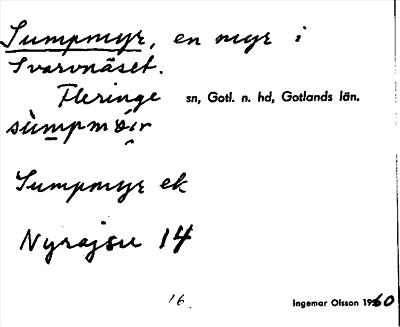 Sumpmyr, en myr i
Svarvnäset.
Fleringe sn, Gotl. n. hd, Gotlands län.
Sumpmyr ek
Nyrajsu 14
16.
Ingemar Olsson 1960